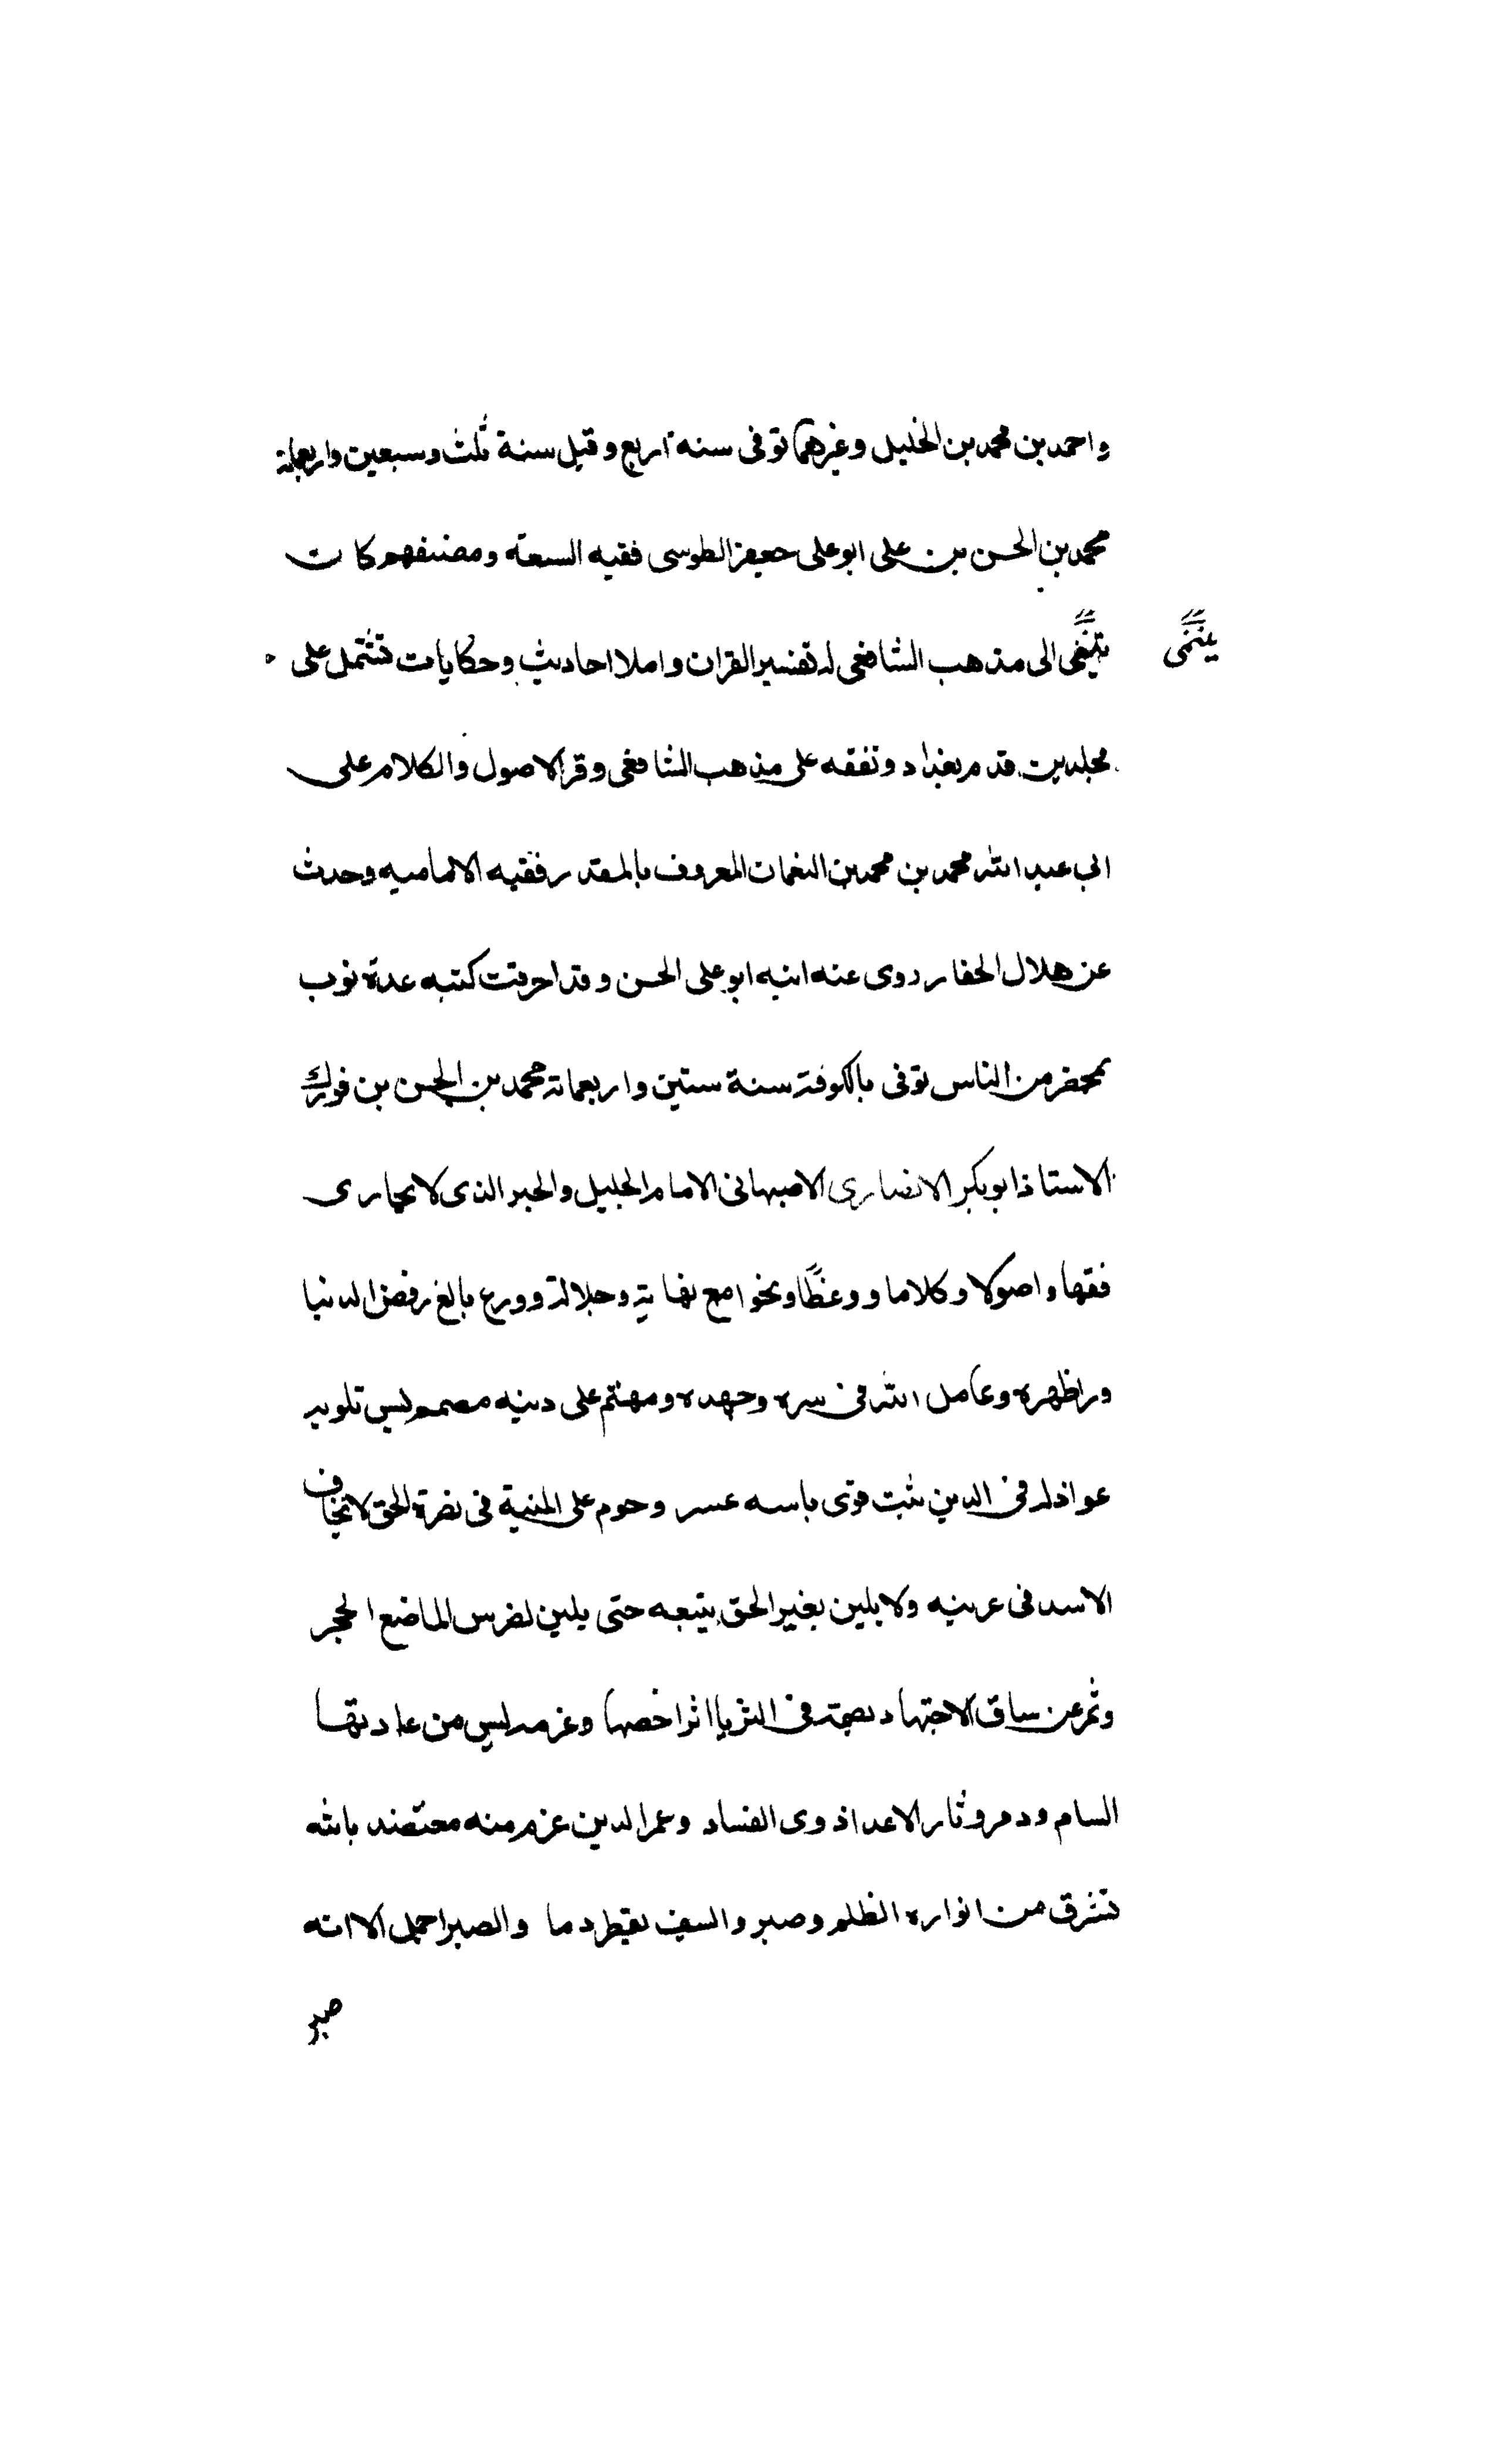 واحمد بن محمد بن الخليل وغيرهما توفى سنه اربع وقيل سنة ثلث وسبعين واربعماية
محمد بن الحسن بن على ابو على جعفر الطوسى فقيه السعة ومصنفهم كان
ينتمى
ينتفى الى مذهب الشافعى له تفسير القران واملا احاديث وحكايات تشتمل على
مجلدين قدم بغداد وتفقه على مذهب الشافعى وقرا الاصول والكلام على
ابى عبد الله محمد بن محمد بن النعمان المعروف بالمقد رفقيه الاماميه وحدث
عن هلال الحفار روى عنه ابنه ابو على الحسن وقد احرقت كتبه عدة نوب
بمحضر من الناس توفى بالكوفة سنة ستين واربعماية محمد بن الحسن بن فورك
الاستاذ ابو بكر الانصارى الاصبهانى الامام الجليل والحبر الذى لا يجارى
فقها واصولا وكلاما ووعظًا ونحوا مع نهاية وجلالة وورع بالغ رفض الدنيا
ورا ظهره وعامل الله فى سره وجهده ومهتم على دينه مصمم ليس تلويه
عواذله فى الدين ثبت قوى باسه عسر وحوم على المنية فى نصرة الحق لا يخاف
الاسد فى عرينه ولا يلين بغير الحق يتبعه حتى يلين لضرس الماضغ الحجر
وشمر عن ساق الاجتهاد بهمة فى الثريا اثر اخمصها وعزمه ليس من عادتها
السام ودمر وثار الاعدا ذوى الفساد وعمر الدين عزم منه معتضد بالله
تشرق من انواره الظلم وصبر والسيف يقطر دما والصبر اجمل الا انه
صبر